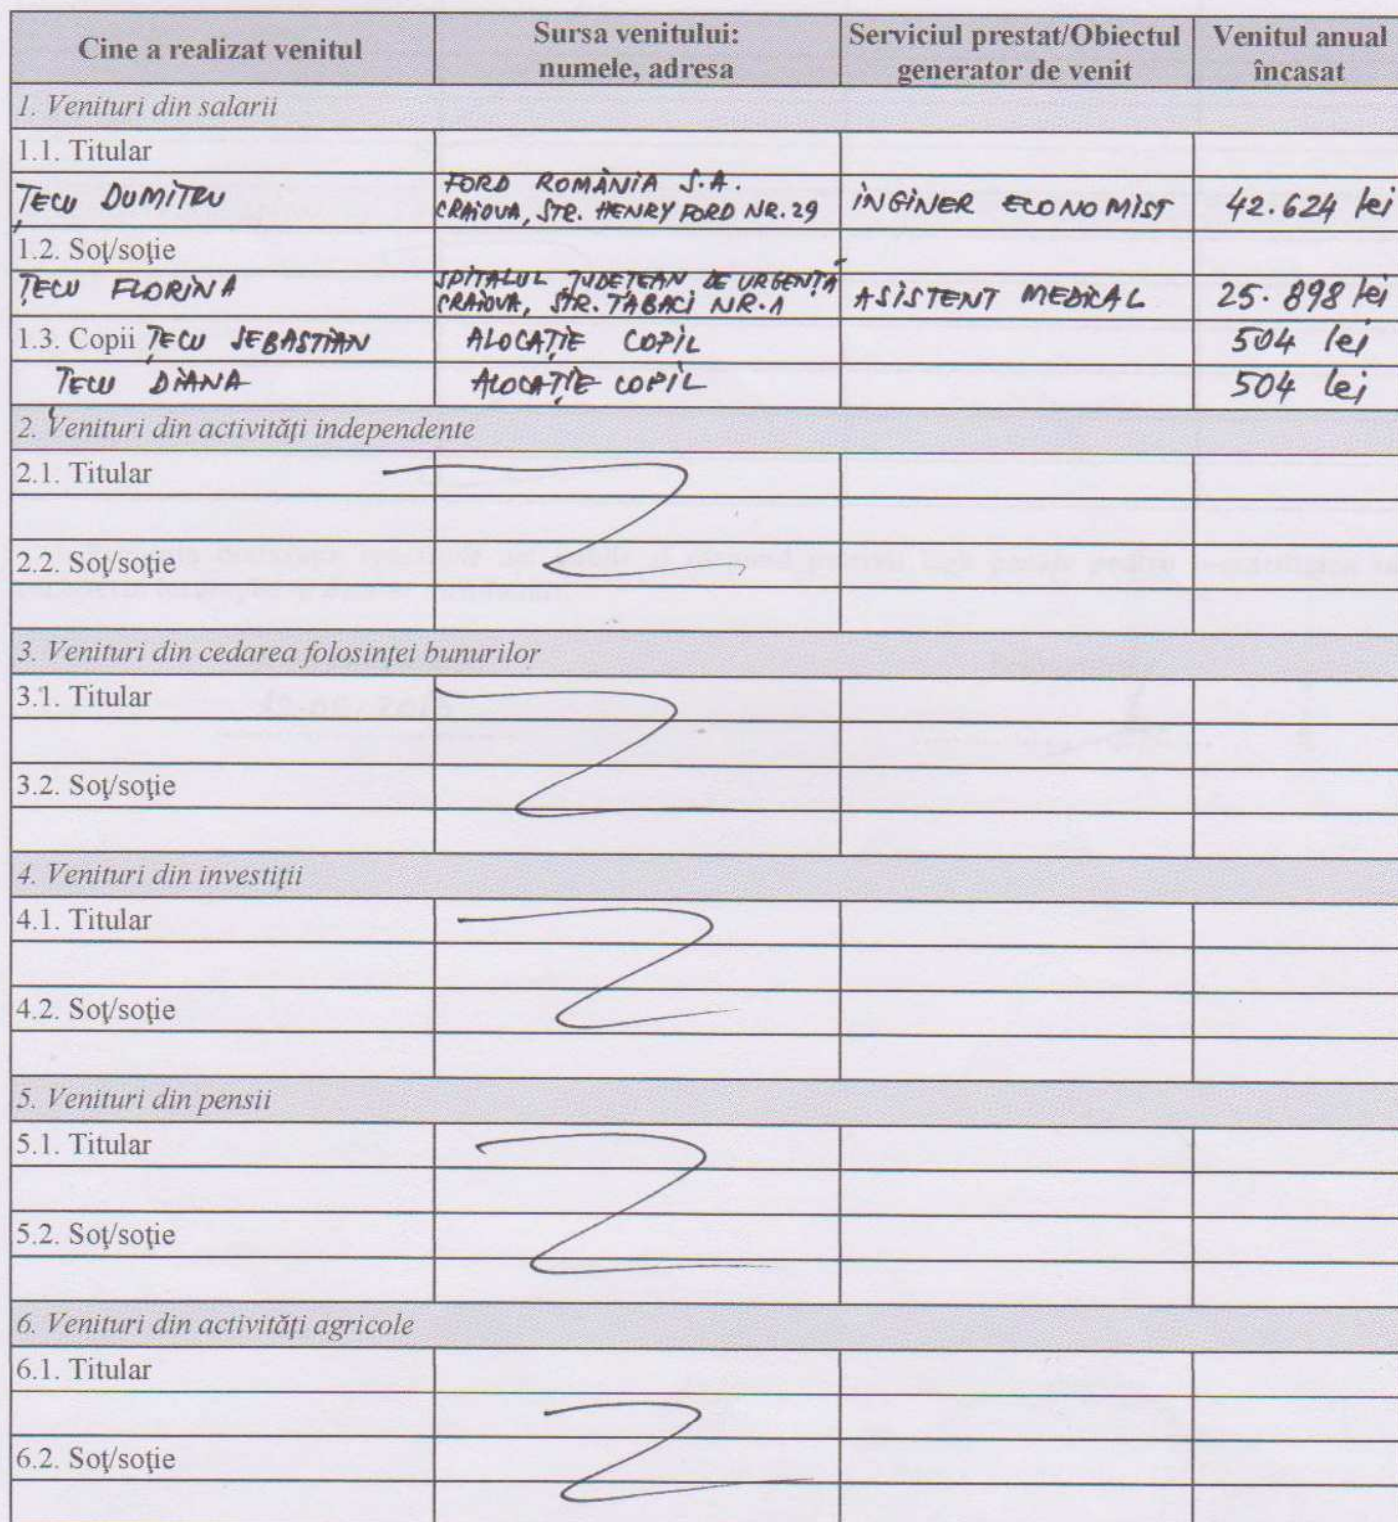 Cine a realizat venitul
Sursa venitului:
numele, adresa
Serviciul prestat/Obiectul
generator de venit
Venitul anual
încasat
1. Venituri din salarii
1.1. Titular
ȚECU DUMITRU
FORD ROMÂNIA S.A.
CRAIOVA, STR. HENRY FORD NR. 29
INGINER ECONOMIST
42.624 lei
1.2. Soţ/soţie
ȚECU FLORINA
SPITALUL JUDEȚEAN DE URGENȚĂ
CRAIOVA, STR. TABACI NR. 1
ASISTENT MEDICAL
25.898 lei
1.3. Copii ȚECU SEBASTIAN
ALOCAȚIE COPIL
504 lei
ȚECU DIANA
ALOCAȚIE COPIL
504 lei
2. Venituri din activităţi independente
2.1. Titular
2.2. Soţ/soţie
3. Venituri din cedarea folosinţei bunurilor
3.1. Titular
3.2. Soţ/soţie
4. Venituri din investiţii
4.1. Titular
4.2. Soţ/soţie
5. Venituri din pensii
5.1. Titular
5.2. Soţ/soţie
6. Venituri din activităţi agricole
6.1. Titular
6.2. Soţ/soţie